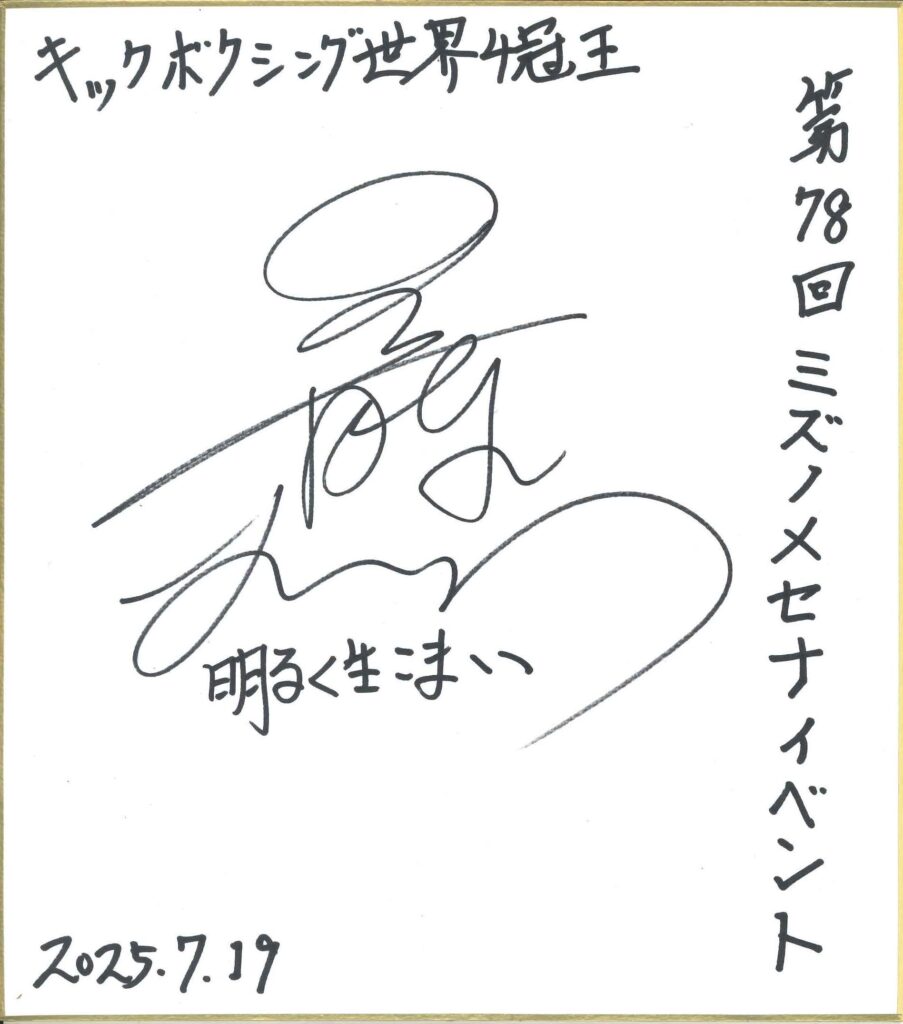 キックボクシング世界4冠王
第78回ミズノメセナイベント
明るく生こまい
2025.7.19